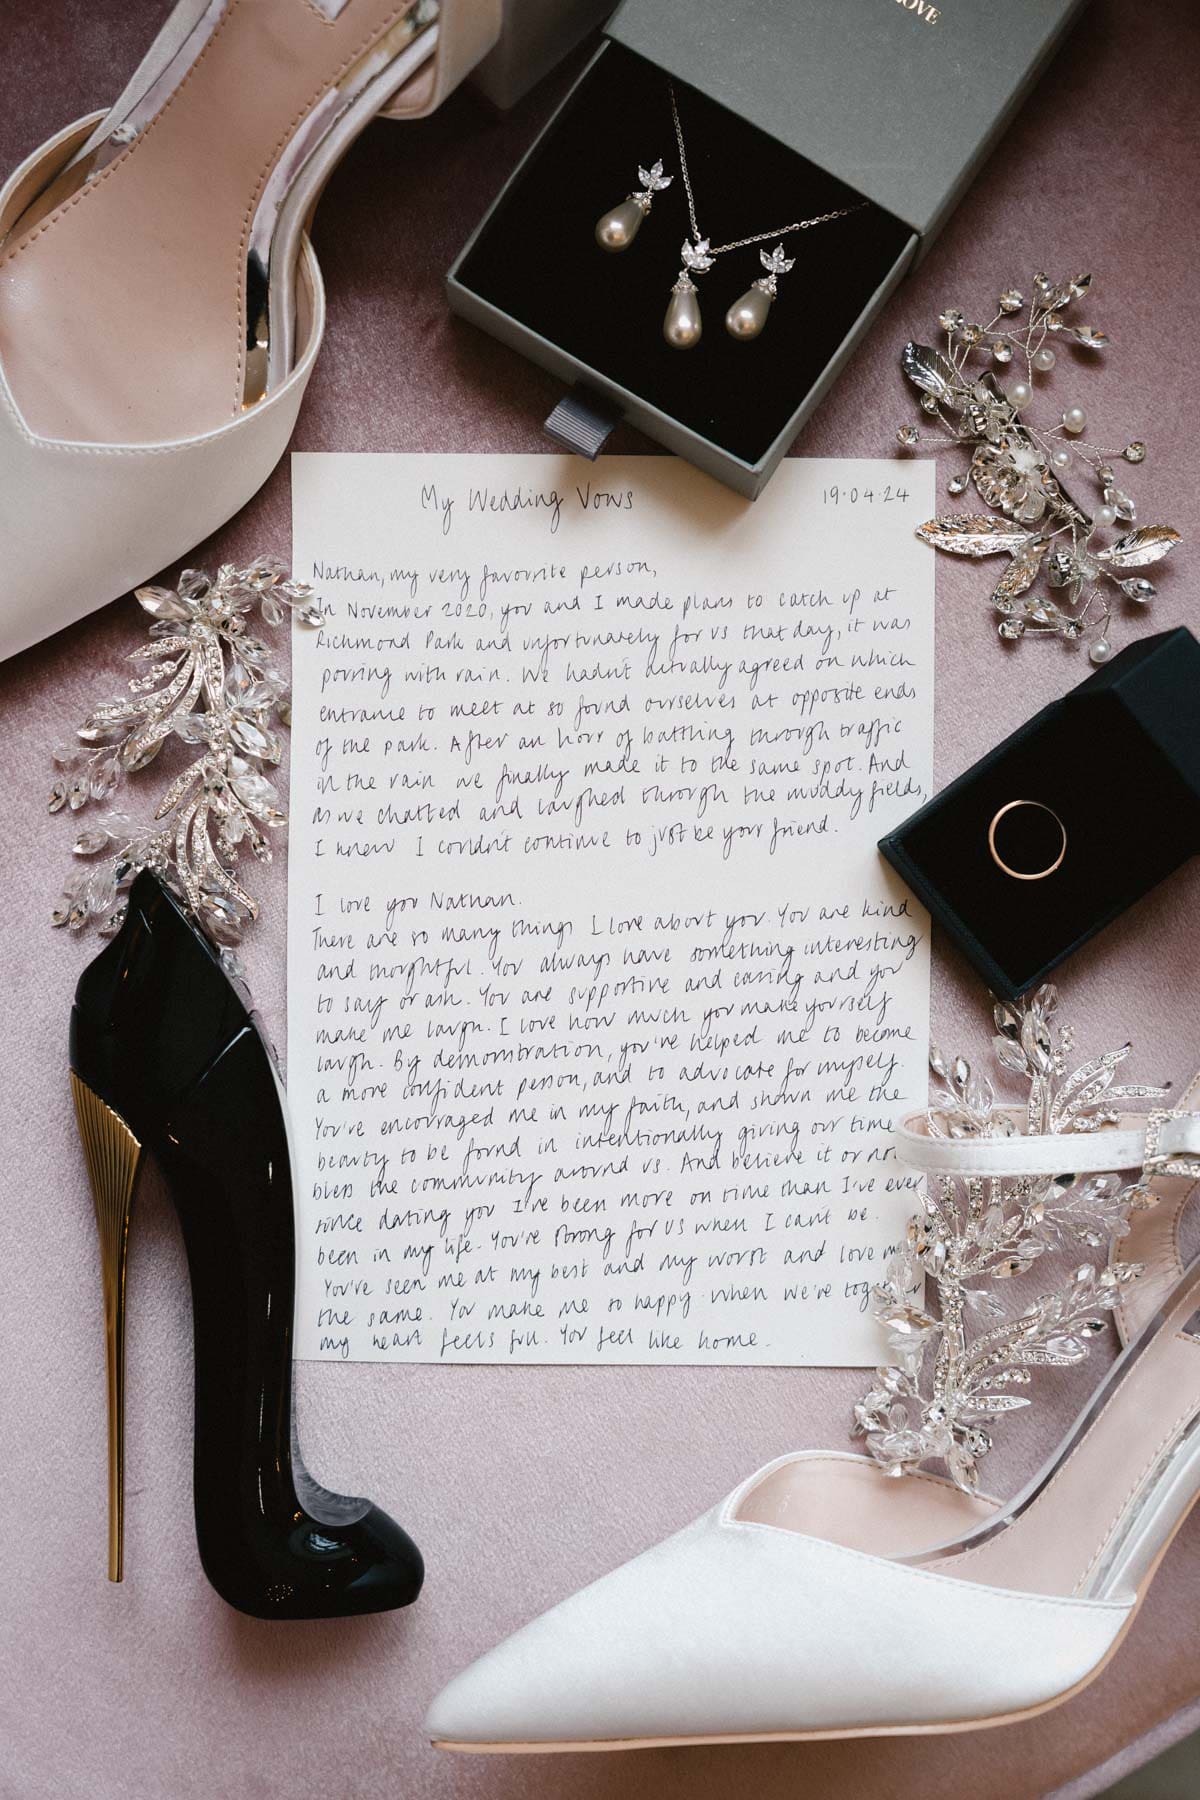 OVE
My Wedding Vows 19.04.24
Nathan, my very favourite person,
In November 2020, you and I made plans to catch up at
Richmond Park and unfortunately for us that day, it was
pouring with rain. We hadn't actually agreed on which
entrance to meet at so found ourselves at opposite ends
of the park. After an hour of battling through traffic
in the rain we finally made it to the same spot. And
as we chatted and laughed through the muddy fields,
I knew I couldn't continue to just be your friend.
I love you Nathan.
There are so many things I love about you. You are kind
and thoughtful. You always have something interesting
to say or ask. You are supportive and caring and you
make me laugh. I love how much you make yourself
laugh. By demonstration, you've helped me to become
a more confident person, and to advocate for myself.
You've encouraged me in my faith, and shown me the
beauty to be found in intentionally giving our time
bless the community around us. And believe it or not
since dating you I've been more on time than I've ever
been in my life. You're strong for us when I can't be.
You've seen me at my best and my worst and love m
the same. You make me so happy. When we're together
my heart feels full. You feel like home.